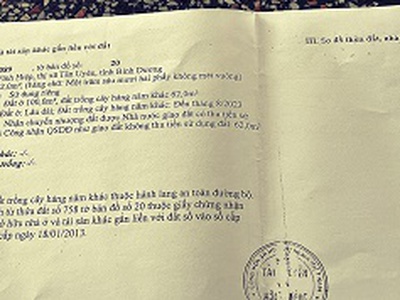 à tài sản khác gắn liền với đất
tờ bản đồ số: 20
Vĩnh Hiệp, thị xã Tân Uyên, tỉnh Bình Dương
(bằng chữ: Một trăm sáu mươi hai phẩy không mét vuông)
Sử dụng riêng
Đất ở 100,0m², đất trồng cây hàng năm khác 62,0m²
Đất ở: Lâu dài; Đất trồng cây hàng năm khác: Đến tháng 8/2023
Nhận chuyển nhượng đất được Nhà nước giao đất có thu tiền sử
Công nhận QSDĐ như giao đất không thu tiền sử dụng đất: 62,0m²
khác: -/-
trồng: -/-
đất trồng cây hàng năm khác thuộc hành lang an toàn đường bộ.
từ thửa đất số 758 tờ bản đồ số 20 thuộc giấy chứng nhận
hữu nhà ở và tài sản khác gắn liền với đất số vào sổ cấp
cấp ngày 18/01/2013.
III. Sơ đồ thửa đất, nhà